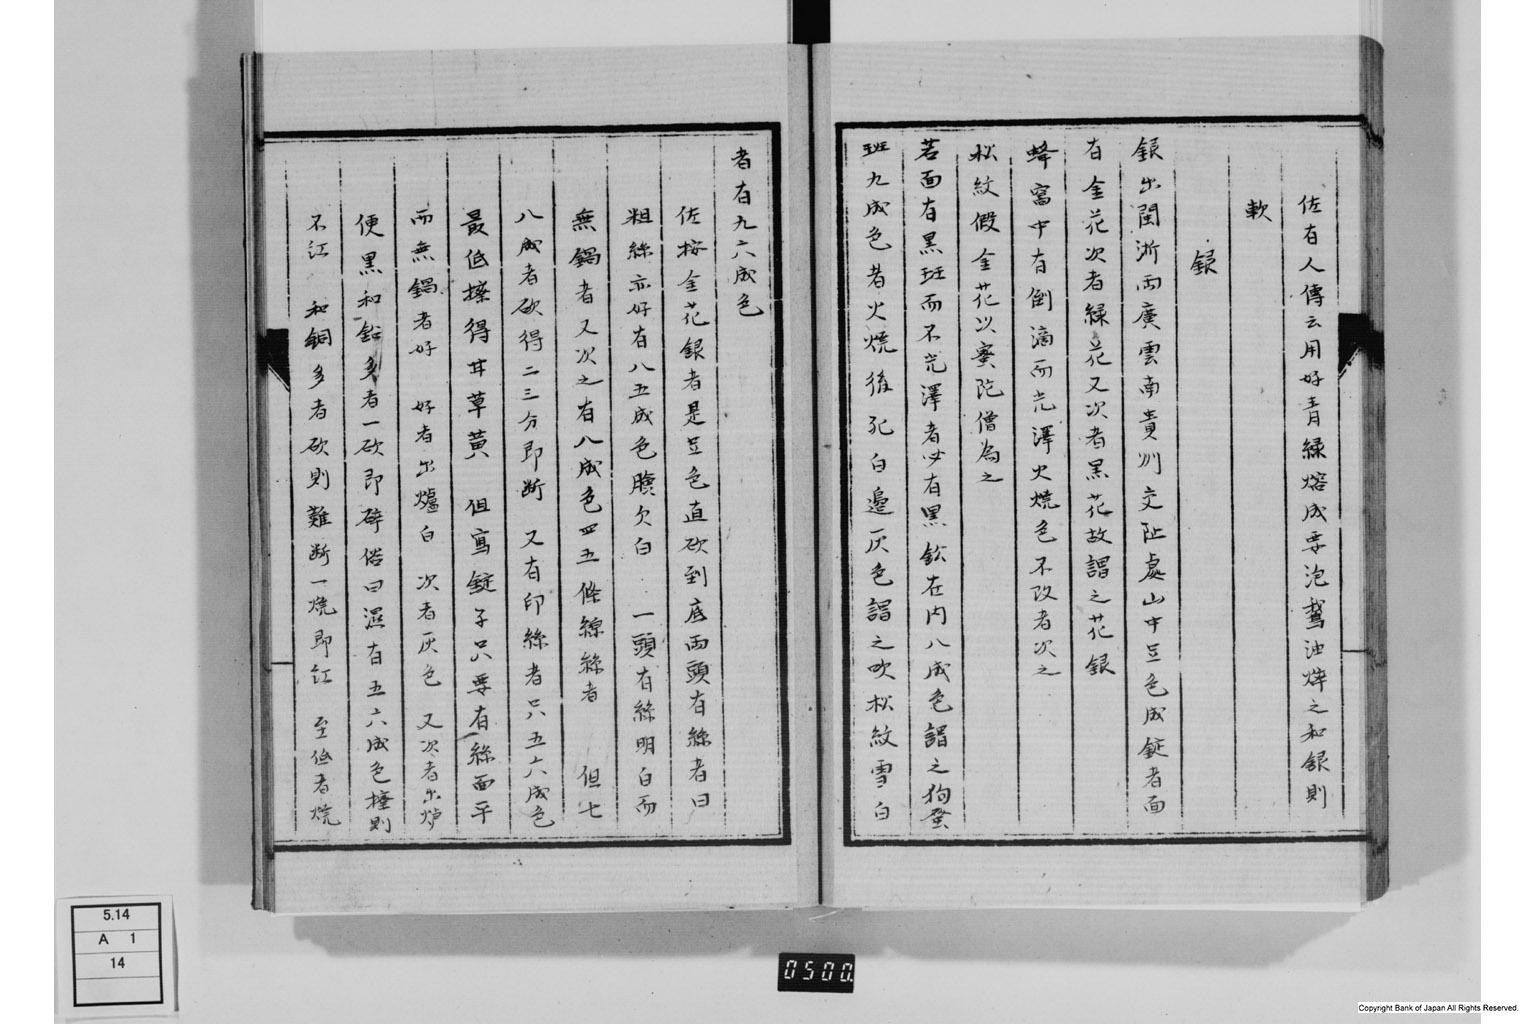 佐有人傳云用好青緑熔成要泡鵝油焠之和銀則
軟
銀
銀出閩浙兩廣雲南貴州交阯處山中足色成錠者面
有金花次者緑花又次者黒花故謂之花銀
蜂窩中有倒滴而光澤火燒色不改者次之
松紋假金花以蜜陀僧為之
若面有黒斑而不光澤者必有黒鉛在内八成色謂之狗蚤
班九成色者火燒後死白邊灰色謂之吹松紋雪白
者有九六成色
佐按金花銀者是足色直砍到底兩頭有絲者曰
粗絲亦好有八五成色贋欠白 一頭有絲明白而
無鍋者又次之有八成色四五條線絲者 但七
八成者砍得二三分即断 又有印絲者只五六成色
最低擦得甘草黄 但寫錠子只要有絲面平
而無鍋者好 好者出爐白 次者灰色 又次者出炉
便黒和鉛多者一砍即碎俗曰濕有五六成色擡則
不江 和銅多者砍則難断一燒即江 至低者燒
5.14
A 1
14
0500.
Copyright Bank of Japan All Rights Reserved.